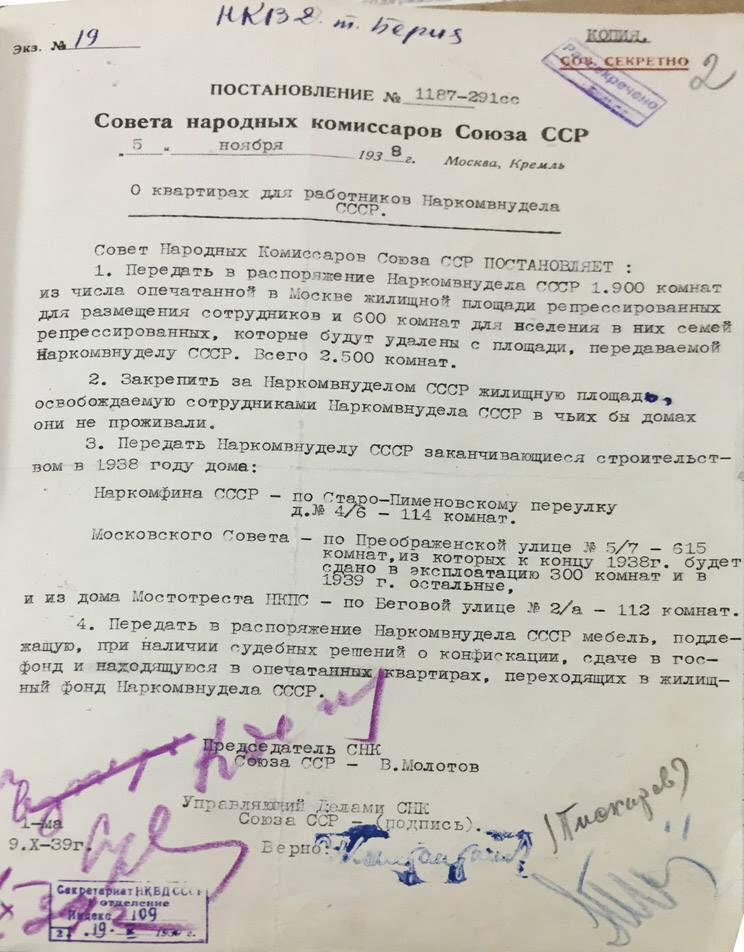 НКВД т. Берия
Экз. № 19
КОПИЯ.
СОВ. СЕКРЕТНО
2
Рассекречено
ПОСТАНОВЛЕНИЕ № 1187-291сс
Совета народных комиссаров Союза ССР
„5 „ ноября 1938 г. Москва, Кремль
О квартирах для работников Наркомвнудела
СССР.
Совет Народных Комиссаров Союза ССР ПОСТАНОВЛЯЕТ :
1. Передать в распоряжение Наркомвнудела СССР 1.900 комнат
из числа опечатанной в Москве жилищной площади репрессированных
для размещения сотрудников и 600 комнат для вселения в них семей
репрессированных, которые будут удалены с площади, передаваемой
Наркомвнуделу СССР. Всего 2.500 комнат.
2. Закрепить за Наркомвнуделом СССР жилищную площадь,
освобождаемую сотрудниками Наркомвнудела СССР в чьих бы домах
они не проживали.
3. Передать Наркомвнуделу СССР заканчивающиеся строительст-
вом в 1938 году дома:
Наркомфина СССР – по Старо-Пименовскому переулку
д.№ 4/6 – 114 комнат.
Московского Совета – по Преображенской улице № 5/7 – 615
комнат,из которых к концу 1938г. будет
сдано в эксплоатацию 300 комнат и в
1939 г. остальные,
и из дома Мостотреста НКПС – по Беговой улице № 2/а – 112 комнат.
4. Передать в распоряжение Наркомвнудела СССР мебель, подле-
жащую, при наличии судебных решений о конфискации, сдаче в гос-
фонд и находящуюся в опечатанных квартирах, переходящих в жилищ-
ный фонд Наркомвнудела СССР.
Председатель СНК
Союза ССР – В.Молотов
Управляющий Делами СНК
Союза ССР – (подпись).
1-ма
9.X-39г.
Верно:
Секретариат НКВД СССР
отделение
Индекс 109
19